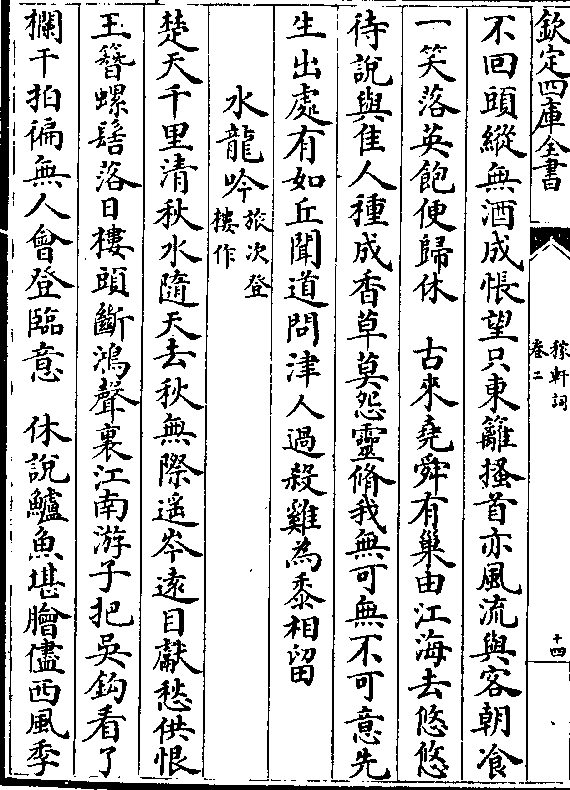 欽定四庫全書
稼軒詞
卷二
十四
不回頭縱無酒成悵望只東籬搔首亦風流與客朝飡
一笑落英飽便歸休　古來堯舜有巢由江海去悠悠
待說與佳人種成香草莫怨靈脩我無可無不可意先
生出處有如丘聞道問津人過殺雞為黍相留
水龍吟旅次登
樓作
楚天千里清秋水隨天去秋無際遥岑遠目獻愁供恨
玉簪螺髻落日樓頭斷鴻聲裏江南游子把吳鈎看了
欄干拍徧無人會登臨意　休說鱸魚堪膾儘西風季